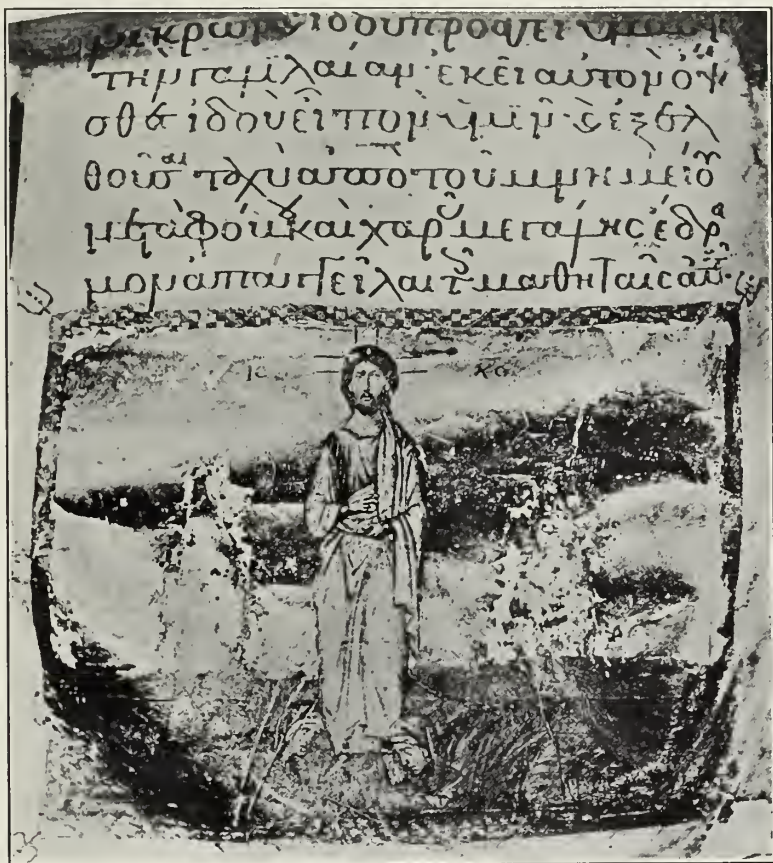 νεκρων ϗ ιδου προαγει υμας
τὴν γαλιλαίαν· ἐκεῖ αὐτὸν ὄψ
σθε ἰδοὺ εἶπον ὑμῖν· ϗ ἐξελ
θοῦσαι ταχὺ ἀπὸ τοῦ μνημείου
μετὰ φόβου καὶ χαρᾶς μεγάλης ἔδρα
μον ἀπαγγεῖλαι τοῖς μαθηταῖς αὐτοῦ·
IC XC